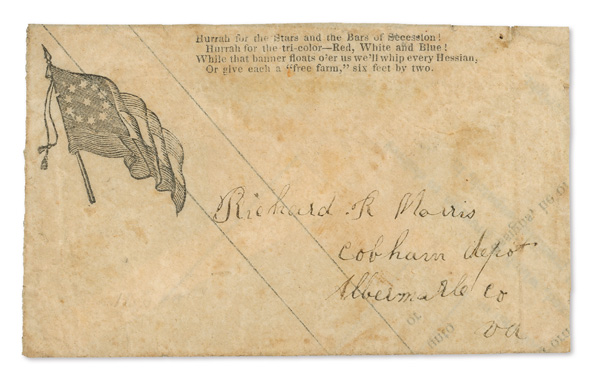 Hurrah for the Stars and the Bars of Secession!
Hurrah for the tri-color—Red, White and Blue!
While that banner floats o'er us we'll whip every Hessian,
Or give each a "free farm," six feet by two.
Richard R Morris
Cobham depot
Albermarle Co
Va